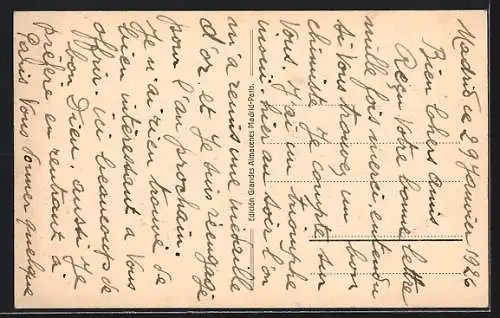 Madrid ce 29 Janvier 1926
Bien Chers Amis
Reçu Votre bonne lettre
mille fois merci, entendu
si Vous trouvez un bon
chimiste Je compte sur
Vous. J'ai un triomphe
inoui hier au soir l'on
m'a remis une médaille
d'or et Je suis réengagé
pour l'an prochain.
Je n'ai rien trouvé de
bien intéressant a Vous
offrir ici beaucoup de
bon Dieu aussi Je
préfère en rentrant à
Paris Vous donner quelque
Edición Grandes Almacenes Madrid-Paris.